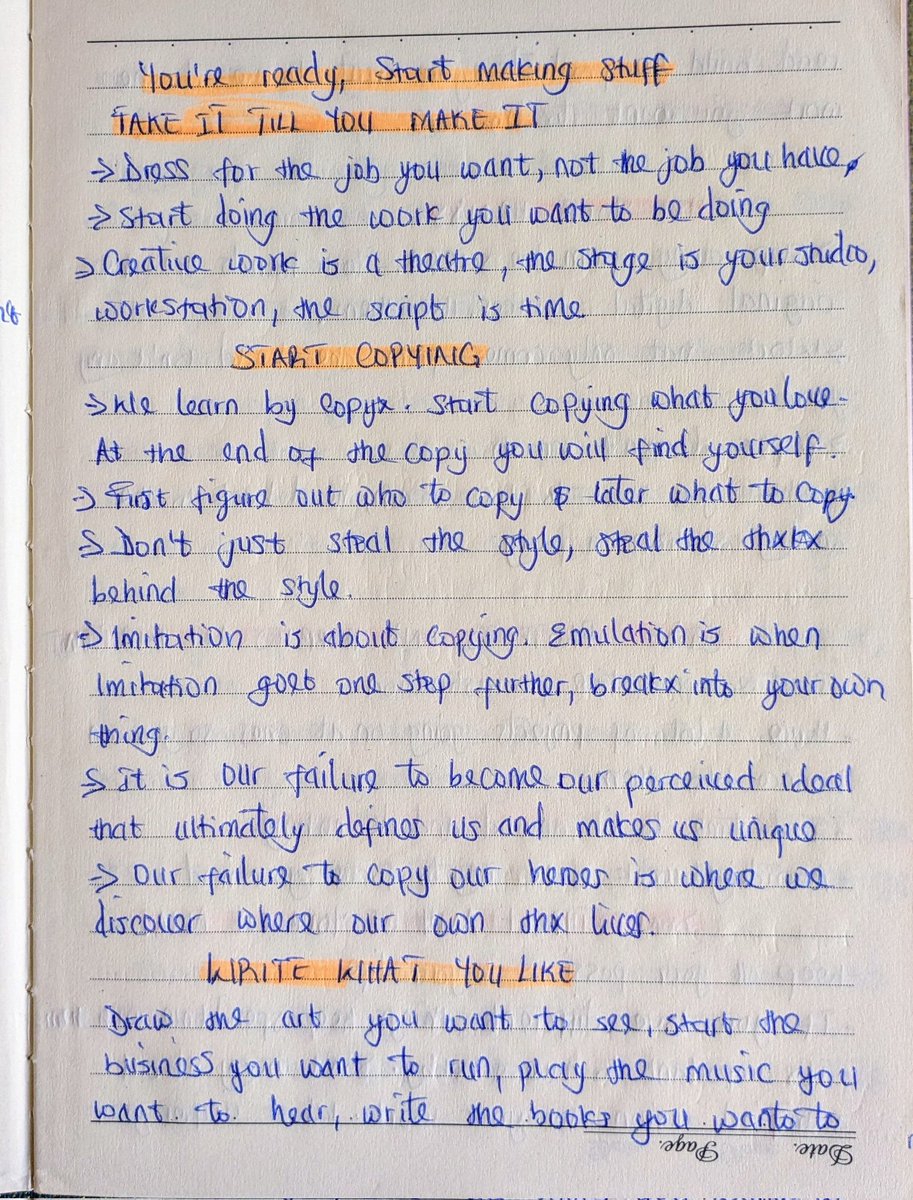 You're ready, Start making stuff
FAKE IT TILL YOU MAKE IT
→ Dress for the job you want, not the job you have,
→ Start doing the work you want to be doing
→ Creative work is a theatre, the stage is your studio,
workstation, the script is time
START COPYING
→ We learn by copyx. Start copying what you love.
At the end of the copy you will find yourself.
→ First figure out who to copy & later what to copy.
→ Don't just steal the style, steal the thxkx
behind the style.
→ Imitation is about copying. Emulation is when
imitation goes one step further, breakx into your own
thing.
→ It is our failure to become our perceived ideal
that ultimately defines us and makes us unique
→ Our failure to copy our heroes is where we
discover where our own thx lives.
WRITE WHAT YOU LIKE
Draw the art you want to see, start the
business you want to run, play the music you
want to hear, write the books you wants to
Page. Date.